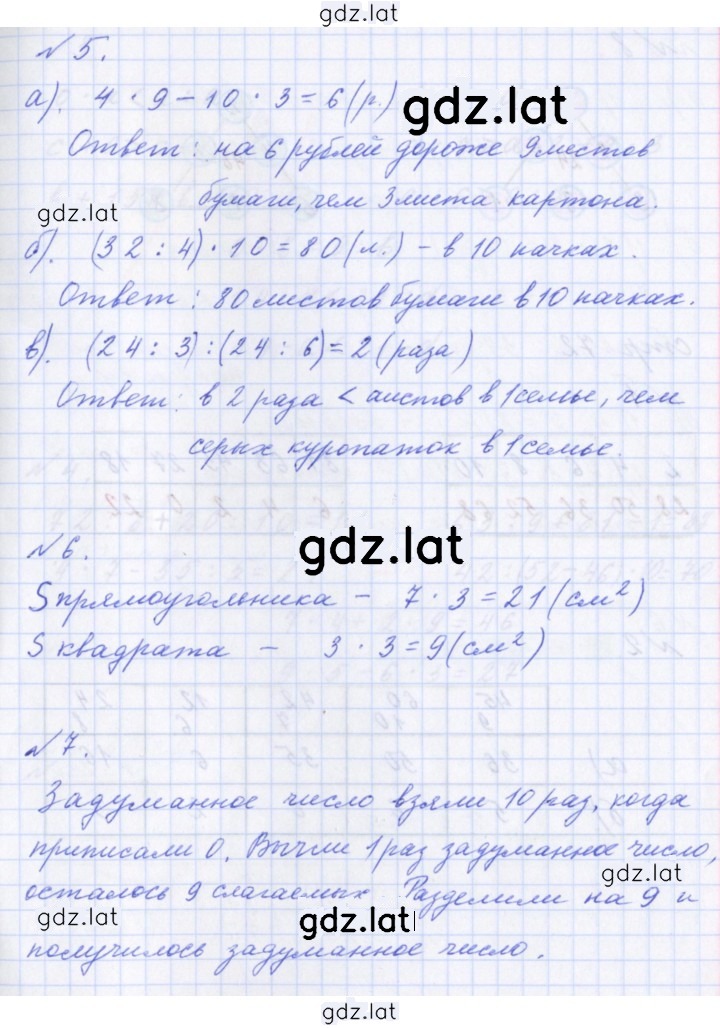 gdz.lat
№ 5.
а). 4 · 9 – 10 · 3 = 6 (р.)
gdz.lat
Ответ: на 6 рублей дороже 9 листов
бумаги, чем 3 листа картона.
gdz.lat
б). (32 : 4) · 10 = 80 (л.) – в 10 пачках.
Ответ: 80 листов бумаги в 10 пачках.
в). (24 : 3) : (24 : 6) = 2 (раза)
Ответ: в 2 раза < аистов в 1 семье, чем
серых куропаток в 1 семье.
№ 6.
gdz.lat
S прямоугольника – 7 · 3 = 21 (см²)
S квадрата – 3 · 3 = 9 (см²)
№ 7.
Задуманное число взяли 10 раз, когда
приписали 0. Вычли 1 раз задуманное число,
осталось 9 слагаемых. Разделили на 9 и
gdz.lat
gdz.lat
gdz.lat
получилось задуманное число.
gdz.lat